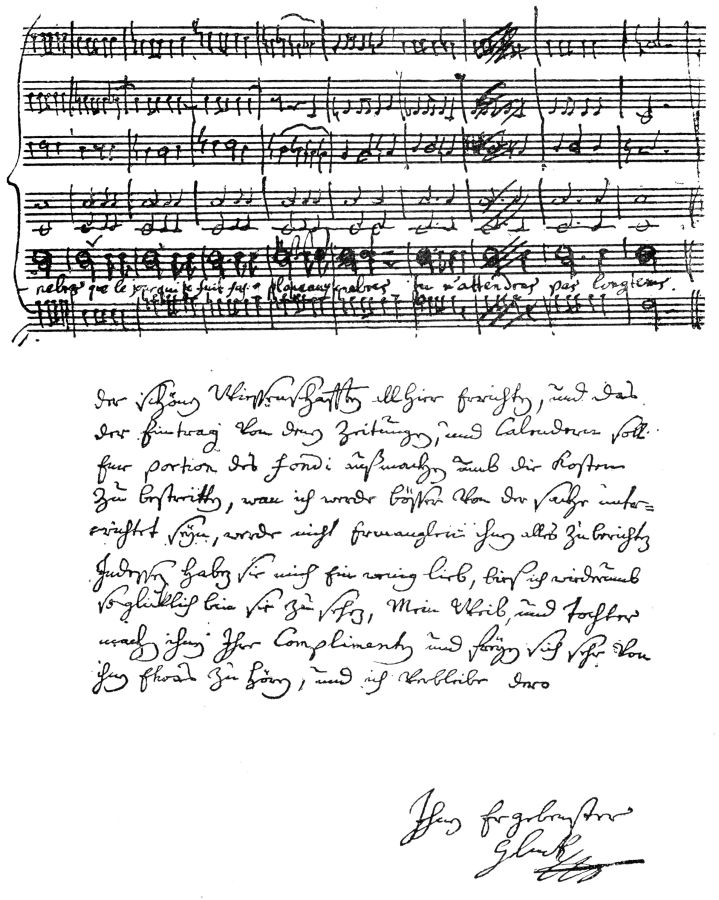 nebres que le jour qui te suit tu n'attendras pas longtems.
der schönen Wiessenschafften allhier Errichten, und das
der Eintrag von denen Zeitungen, und Calendern soll
Eine portion des fondi außmachen umb die Kosten
zu bestreitten, wan ich werde bösser von der sache unter=
richtet seÿn, werde nicht Ermanglen ihnen alles zu berichten
Indessen haben sie mich Ein wenig lieb, bies ich wiederumb
so glücklich bin sie zu sehen, Mein Weib, und Tochter
machen ihnen Ihre Complimenten und freÿen sich sehr von
ihnen Etwas zu hören, und ich verbleibe dero
Ihnen Ergebenster
Gluck